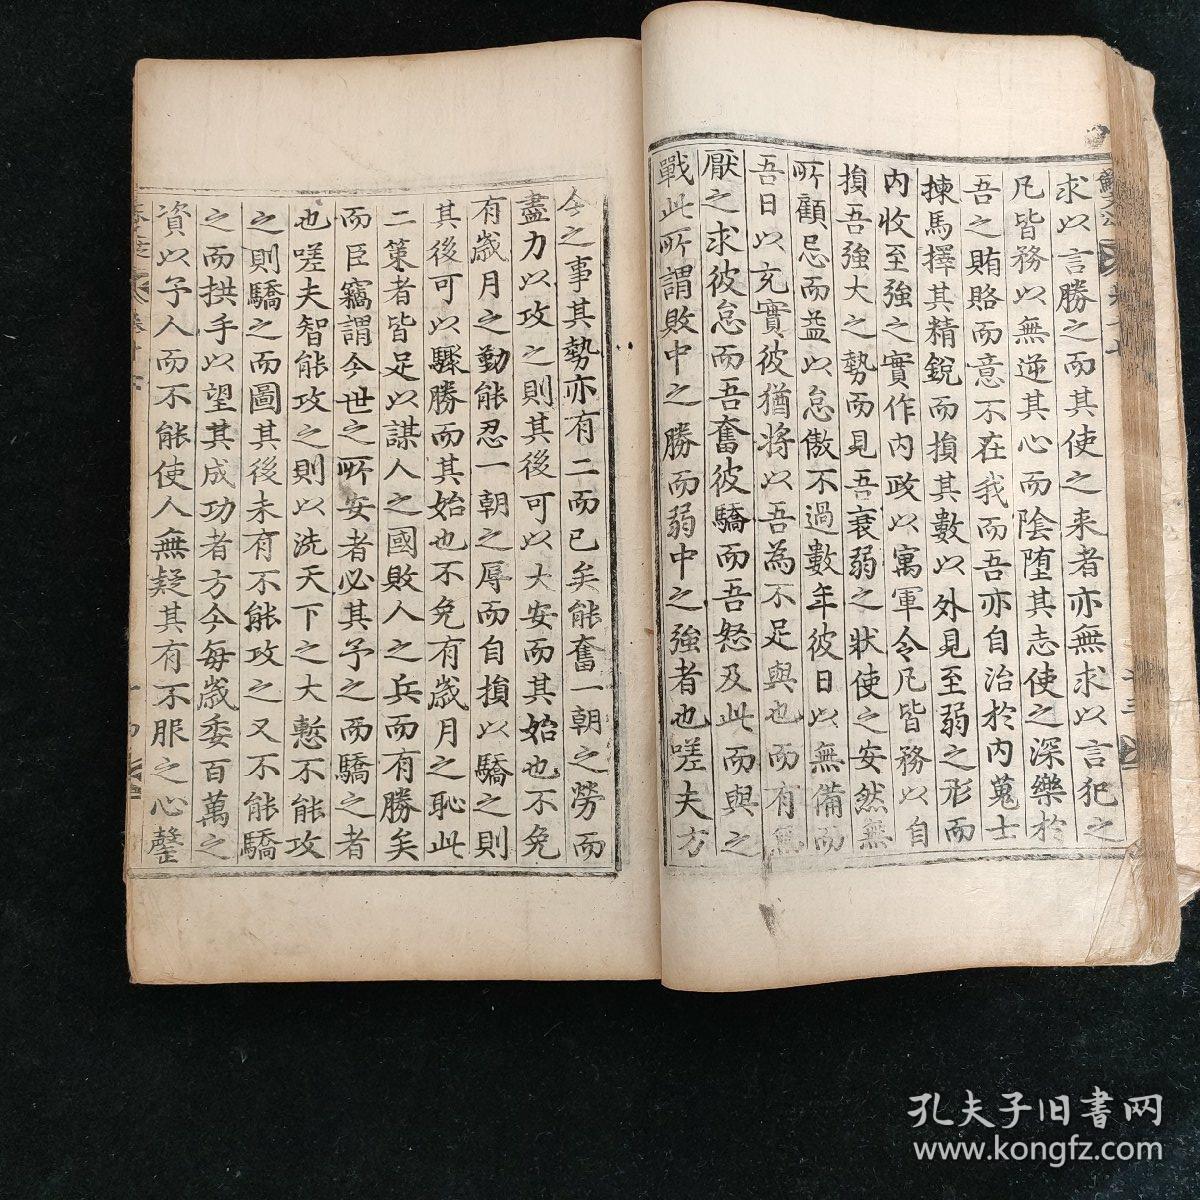 求以言勝之而其使之来者亦無求以言犯之
凡皆務以無逆其心而陰堕其志使之深樂於
吾之賄賂而意不在我而吾亦自治於内蒐士
揀馬擇其精銳而損其數以外見至弱之形而
内收至強之實作内政以寓軍令凡皆務以自
損吾強大之勢而見吾衰弱之狀使之安然無
所顧忌而益以怠傲不過數年彼日以無備而
吾日以充實彼猶將以吾為不足與也而有無
厭之求彼怠而吾奮彼驕而吾怒及此而與之
戰此所謂敗中之勝而弱中之強者也嗟夫方
今之事其勢亦有二而已矣能奮一朝之勞而
盡力以攻之則其後可以大安而其始也不免
有歲月之勤能忍一朝之辱而自損以驕之則
其後可以驟勝而其始也不免有歲月之恥此
二策者皆足以謀人之國敗人之兵而有勝矣
而臣竊謂今世之所安者必其予之而驕之者
也嗟夫智能攻之則以洗天下之大慙不能攻
之則驕之而圖其後未有不能攻之又不能驕
之而拱手以望其成功者方今每歲委百萬之
資以予人而不能使人無疑其有不服之心罄
孔夫子旧书网
www.kongfz.com